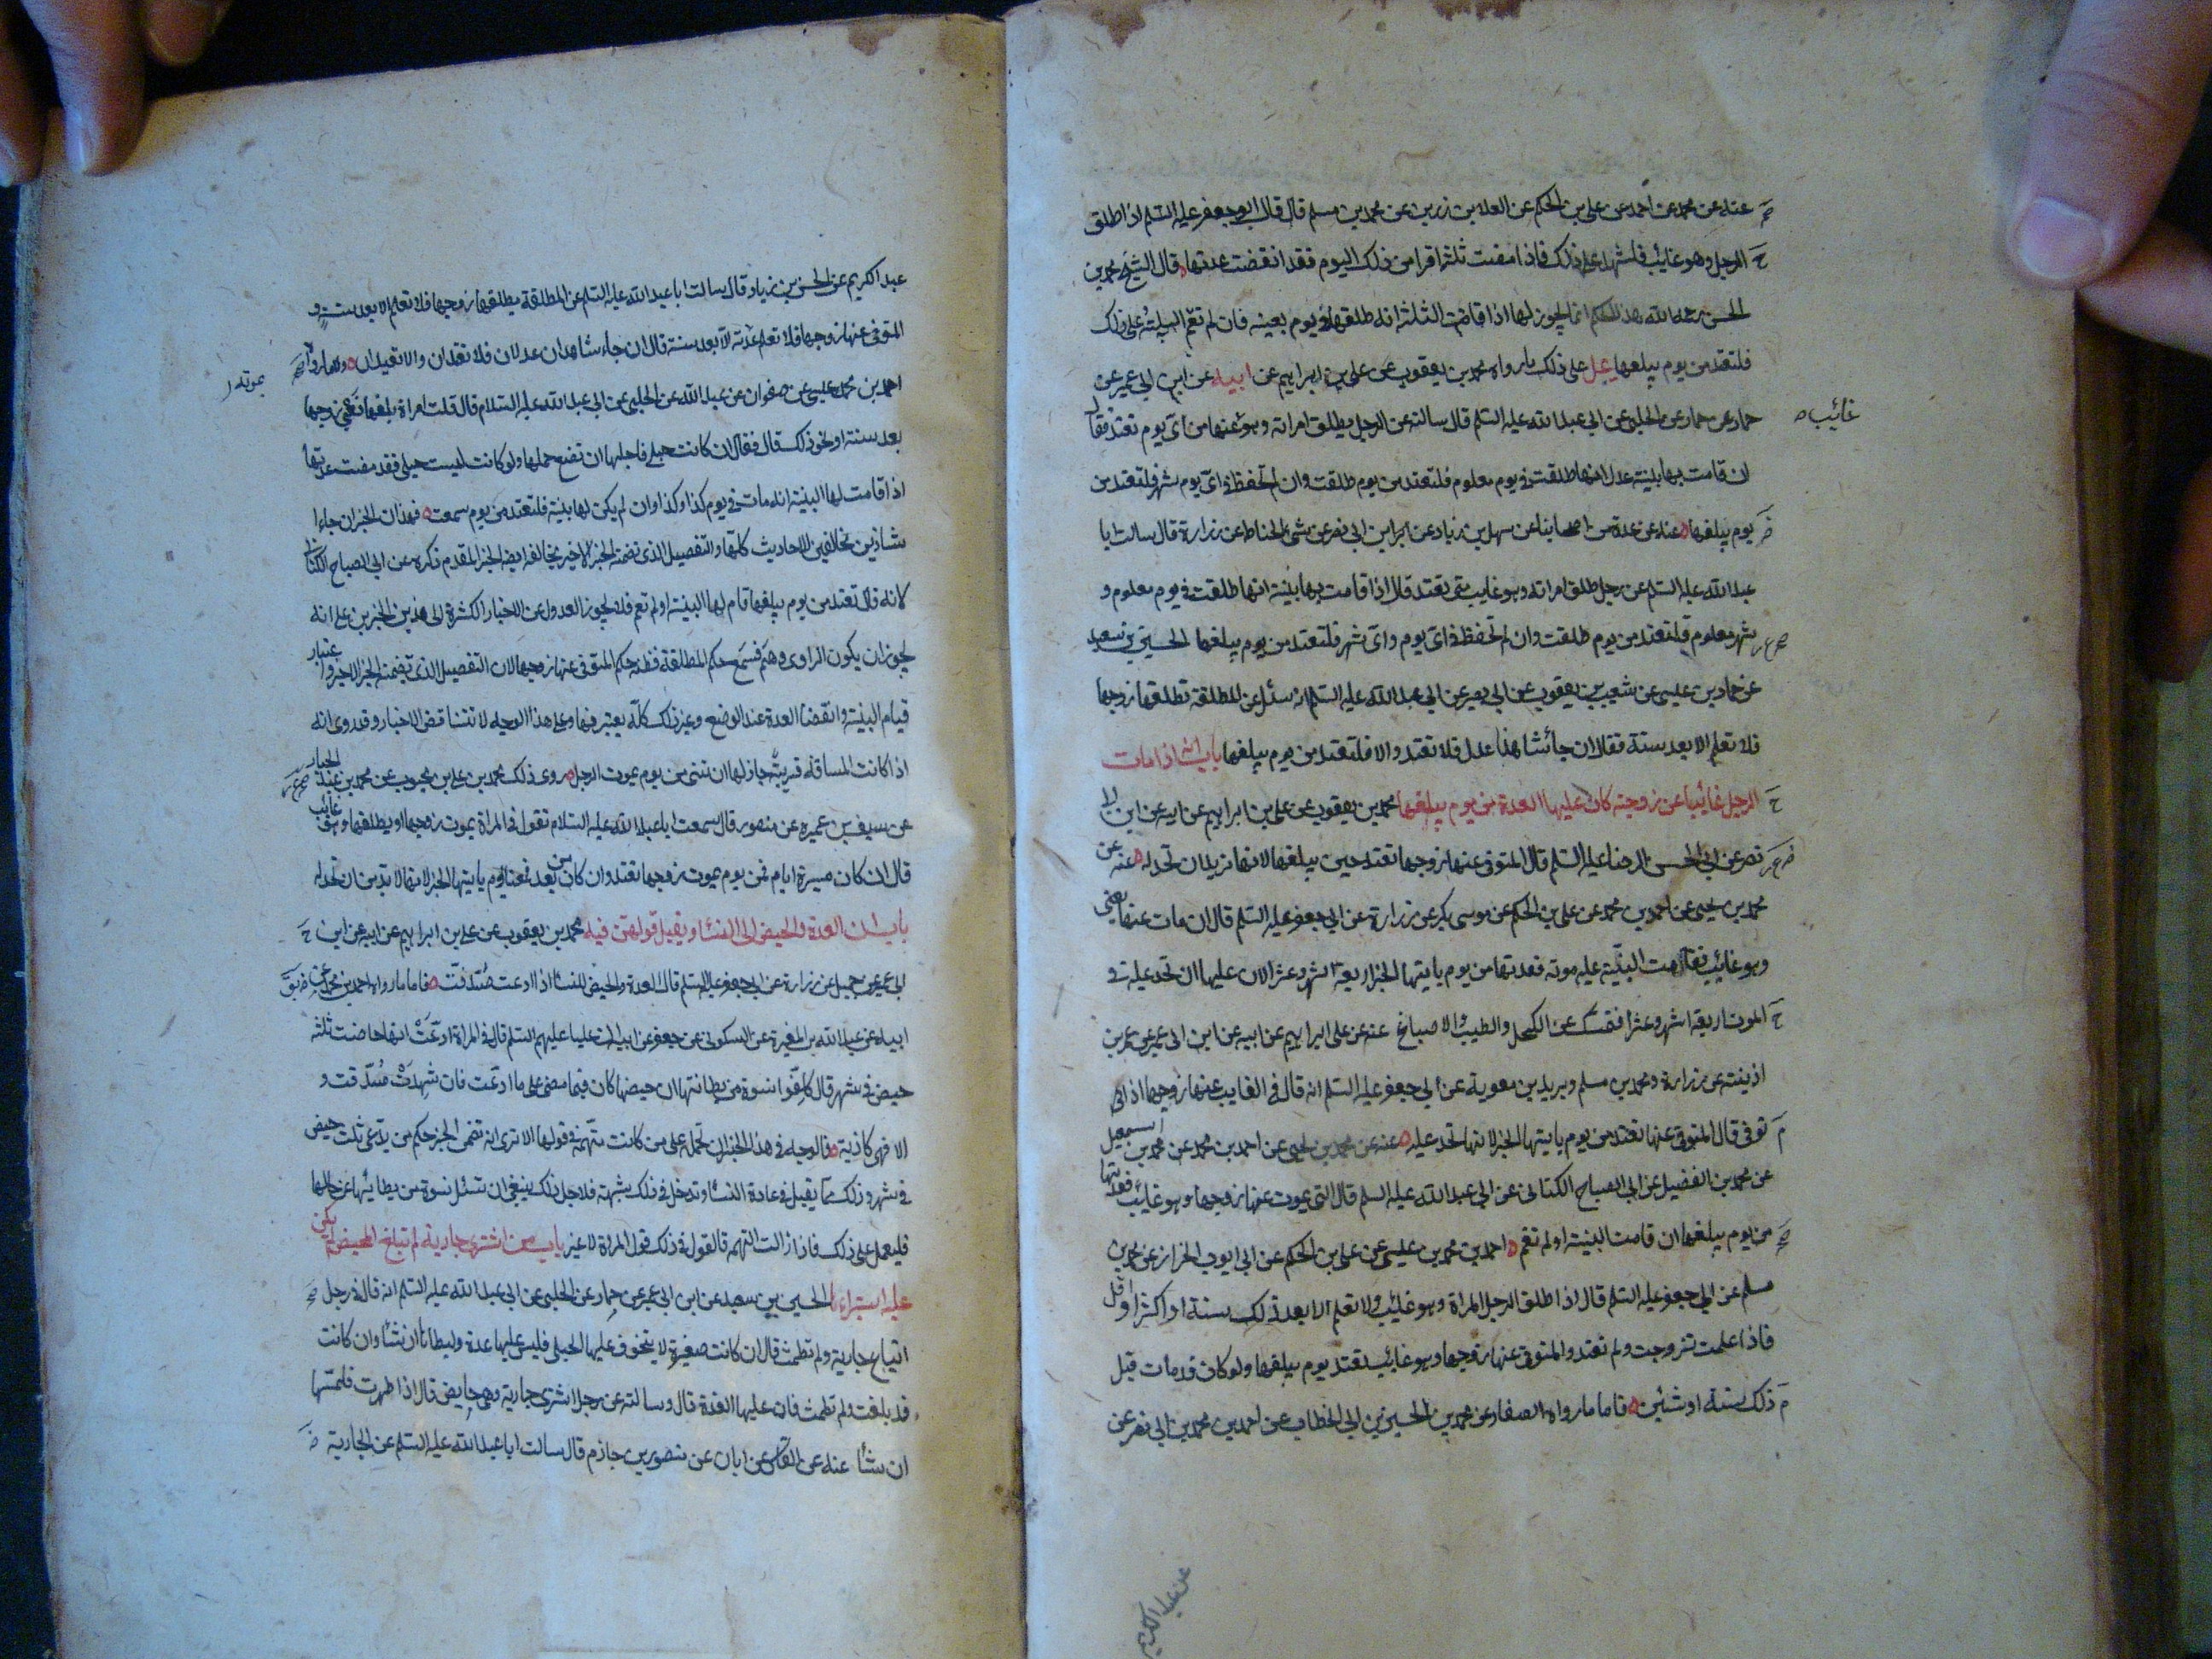 عنه عن محمد عن احمد عن علي بن الحكم عن العلا بن زرين عن محمد بن مسلم قال قال ابو جعفر عليه السلم اذا طلق
الرجل وهو غائب فليشهد على ذلك فاذا مضت ثلثة اقرا من ذلك اليوم فقد انقضت عدتها قال الشيخ محمد بن
الحسن رحمه الله هذا الحكم انما يجوز لها اذا قامت البينة انه طلقها في يوم بعينه فان لم تقم البينة على ذلك
فلتعتد من يوم يبلغها يدل على ذلك ما رواه محمد بن يعقوب عن علي بن ابراهيم عن ابيه عن ابن ابي عمير عن
حماد عن الحلبي عن ابي عبد الله عليه السلم قال سالته عن الرجل يطلق امراته وهو عنها من اي يوم تعتد فقال
غائب
ان قامت بها بينة عدل انها طلقت في يوم معلوم فلتعتد من يوم طلقت وان لم تحفظ في اي يوم شهر فلتعتد من
يوم يبلغها عنه عن عدة من اصحابنا عن سهل بن زياد عن ابن ابي نصر عن مثنى الحناط عن زرارة قال سالت ابا
عبد الله عليه السلم عن رجل طلق امراته وهو غايب متى تعتد قال اذا قامت بها بينة انها طلقت في يوم معلوم و
شهر معلوم فلتعتد من يوم طلقت وان لم تحفظ في اي يوم واي شهر فلتعتد من يوم يبلغها الحسين بن سعيد
عن حماد بن عيسى عن شعيب بن يعقوب عن ابي بصير عن ابي عبد الله عليه السلم انه سئل عن المطلقة تطلقها زوجها
فلا تعلم الا بعد سنة فقال ان جا شاهدا عدل فلا تعتد والا فلتعتد من يوم يبلغها باب انه اذا مات
الرجل غائبا عن زوجته كان عليها العدة من يوم يبلغها محمد بن يعقوب عن علي بن ابراهيم عن ابيه عن ابن ابي
نصر عن ابي الحسن الرضا عليه السلم قال المتوفى عنها زوجها تعتد حين يبلغها لانها تريد ان تحد له عنه عن
محمد بن يحيى عن احمد بن محمد عن علي بن الحكم عن موسى بكر عن زرارة عن ابي جعفر عليه السلم قال ان مات عنها يعني
وهو غائب فقامت البينة عليه موته فعدتها من يوم ياتيها الخبر اربعة اشهر وعشرا لان عليها ان تحد عليه في
الموت اربعة اشهر وعشرا فتمسك عن الكحل والطيب والاصباغ عنه عن علي ابراهيم عن ابيه عن ابن ابي عمير عن عمر بن
اذينة عن زرارة ومحمد بن مسلم وبريد بن معوية عن ابي جعفر عليه السلم انه قال في الغايب عنها زوجها اذا
توفى قال المتوفى عنها تعتد من يوم ياتيها الخبر لانها تحد عليه عنه عن محمد بن يحيى عن احمد بن محمد عن محمد بن اسمعيل
عن محمد بن الفضيل عن ابي الصباح الكناني عن ابي عبد الله عليه السلم قال التي يموت عنها زوجها وهو غايب فعدتها
من يوم يبلغها ان قامت البينة او لم تقم احمد بن محمد بن عيسى عن علي بن الحكم عن ابي ايوب الخزاز عن محمد بن
مسلم عن ابي جعفر عليه السلم قال اذا طلق الرجل المراة وهو غائب ولا تعلم الا بعد ذلك سنة او اكثر او اقل
فاذا علمت تزوجت ولم تعتد والمتوفى عنها زوجها وهو غائب تعتد يوم يبلغها ولو كان قد مات قبل
ذلك بسنة او سنتين فاما ما رواه الصفار عن محمد بن الحسين بن ابي الخطاب عن احمد بن محمد بن ابي نصر عن
عن عبد الكريم
عبد الكريم عن الحسن بن زياد قال سالت ابا عبد الله عليه السلم عن المطلقة يطلقها زوجها فلا تعلم الا بعد سنة و
المتوفى عنها زوجها فلا تعلم الا بعد سنة قال ان جاء شاهدان عدلان فلا تعتدان والا تعتدان وما رواه
بموته
احمد بن محمد عيسى عن صفوان عن عبد الله عن الحلبي عن ابي عبد الله عليه السلام قال قلت امراة بلغها نعي زوجها
بعد سنة او نحو ذلك قال فقال ان كانت حبلى فاجلها ان تضع حملها ولو كانت ليست حبلى فقد مضت عدتها
اذا قامت لها البينة انه مات في يوم كذا وكذا وان لم يكن لها بينة فلتعتد من يوم سمعت فهذان الخبران جاءا
شاذين مخالفين للاحاديث كلها والتفصيل الذي تضمنه الخبر الاخير يخالفه ايضا الخبر المقدم ذكره عن ابي الصباح الكناني
لانه قال تعتد من يوم يبلغها قام لها البينة او لم تقم فلا يجوز العدول عن الاخبار الكثيرة الى هذين الخبرين على انه
يجوز ان يكون الراوي وهم فسمع حكم المطلقة فظنه حكم المتوفى عنها زوجها لان التفصيل الذي يتضمنه الخبر الاخير واعتبار
قيام البينة وانقضا العدة عند الوضع وغير ذلك كله يعتبر فيها وعلى هذا الوجه لا تتناقض الاخبار وقد روى انه
اذا كانت المسافة قريبة جاز لها ان تبني من يوم يموت الرجل روى ذلك محمد بن علي بن محبوب عن محمد بن عبد الجبار
عن سيف بن عميرة عن منصور قال سمعت ابا عبد الله عليه السلام تقول في المراة يموت زوجها او يطلقها وهو غائب
قال ان كان مسيرة ايام فمن يوم يموت زوجها تعتد وان كان من بعد فمن يوم ياتيها الخبر لانها لا بد من ان تحد له
باب ان العدة والحيض الى النساء ويقبل قولهن فيه محمد بن يعقوب عن علي بن ابراهيم عن ابيه عن ابن
ابي عمير عن جميل عن زرارة عن ابي جعفر عليه السلم قال العدة والحيض للنسا اذا ادعت صدقت فاما ما رواه احمد بن محمد عن
ابيه عن عبد الله بن المغيرة عن السكوني عن جعفر عن ابيه ان عليا عليهم السلم قال في المراة ادعت انها حاضت ثلثة
حيض في شهر قال كلفوا نسوة من بطانتها ان حيضها كان فيما مضى على ما ادعت فان شهدت صدقت و
الا فهي كاذبة فالوجه في هذا الخبر ان نحمله على من كانت متهمة في قولها الا ترى انه تضمن الخبر حكم من يدعي ثلث حيض
في شهر وذلك مما يقبل في عادة النسا وتدخل في ذلك شبهة فلاجل ذلك ينبغي ان تسئل نسوة من بطانتها عن حالها
فليعمل على ذلك فاذا زالت التهم فالقول في ذلك قول المراة لا غير باب من اشترى جارية لم تبلغ المحيض لم يكن
عليه استبراءها الحسين بن سعيد عن ابن ابي عمير عن حماد عن الحلبي عن ابي عبد الله عليه السلم انه قال في رجل
ابتاع جارية ولم تطمث قال ان كانت صغيرة لا يتخوف عليها الحبلى فليس عليها عدة وليطاها ان شا وان كانت
قد بلغت ولم تطمث فان عليها العدة قال وسالته عن رجل اشترى جارية وهي حايض قال اذا طهرت فليمسها
ان شا عنه عن القاسم عن ابان عن منصور بن حازم قال سالت ابا عبد الله عليه السلم عن الجارية